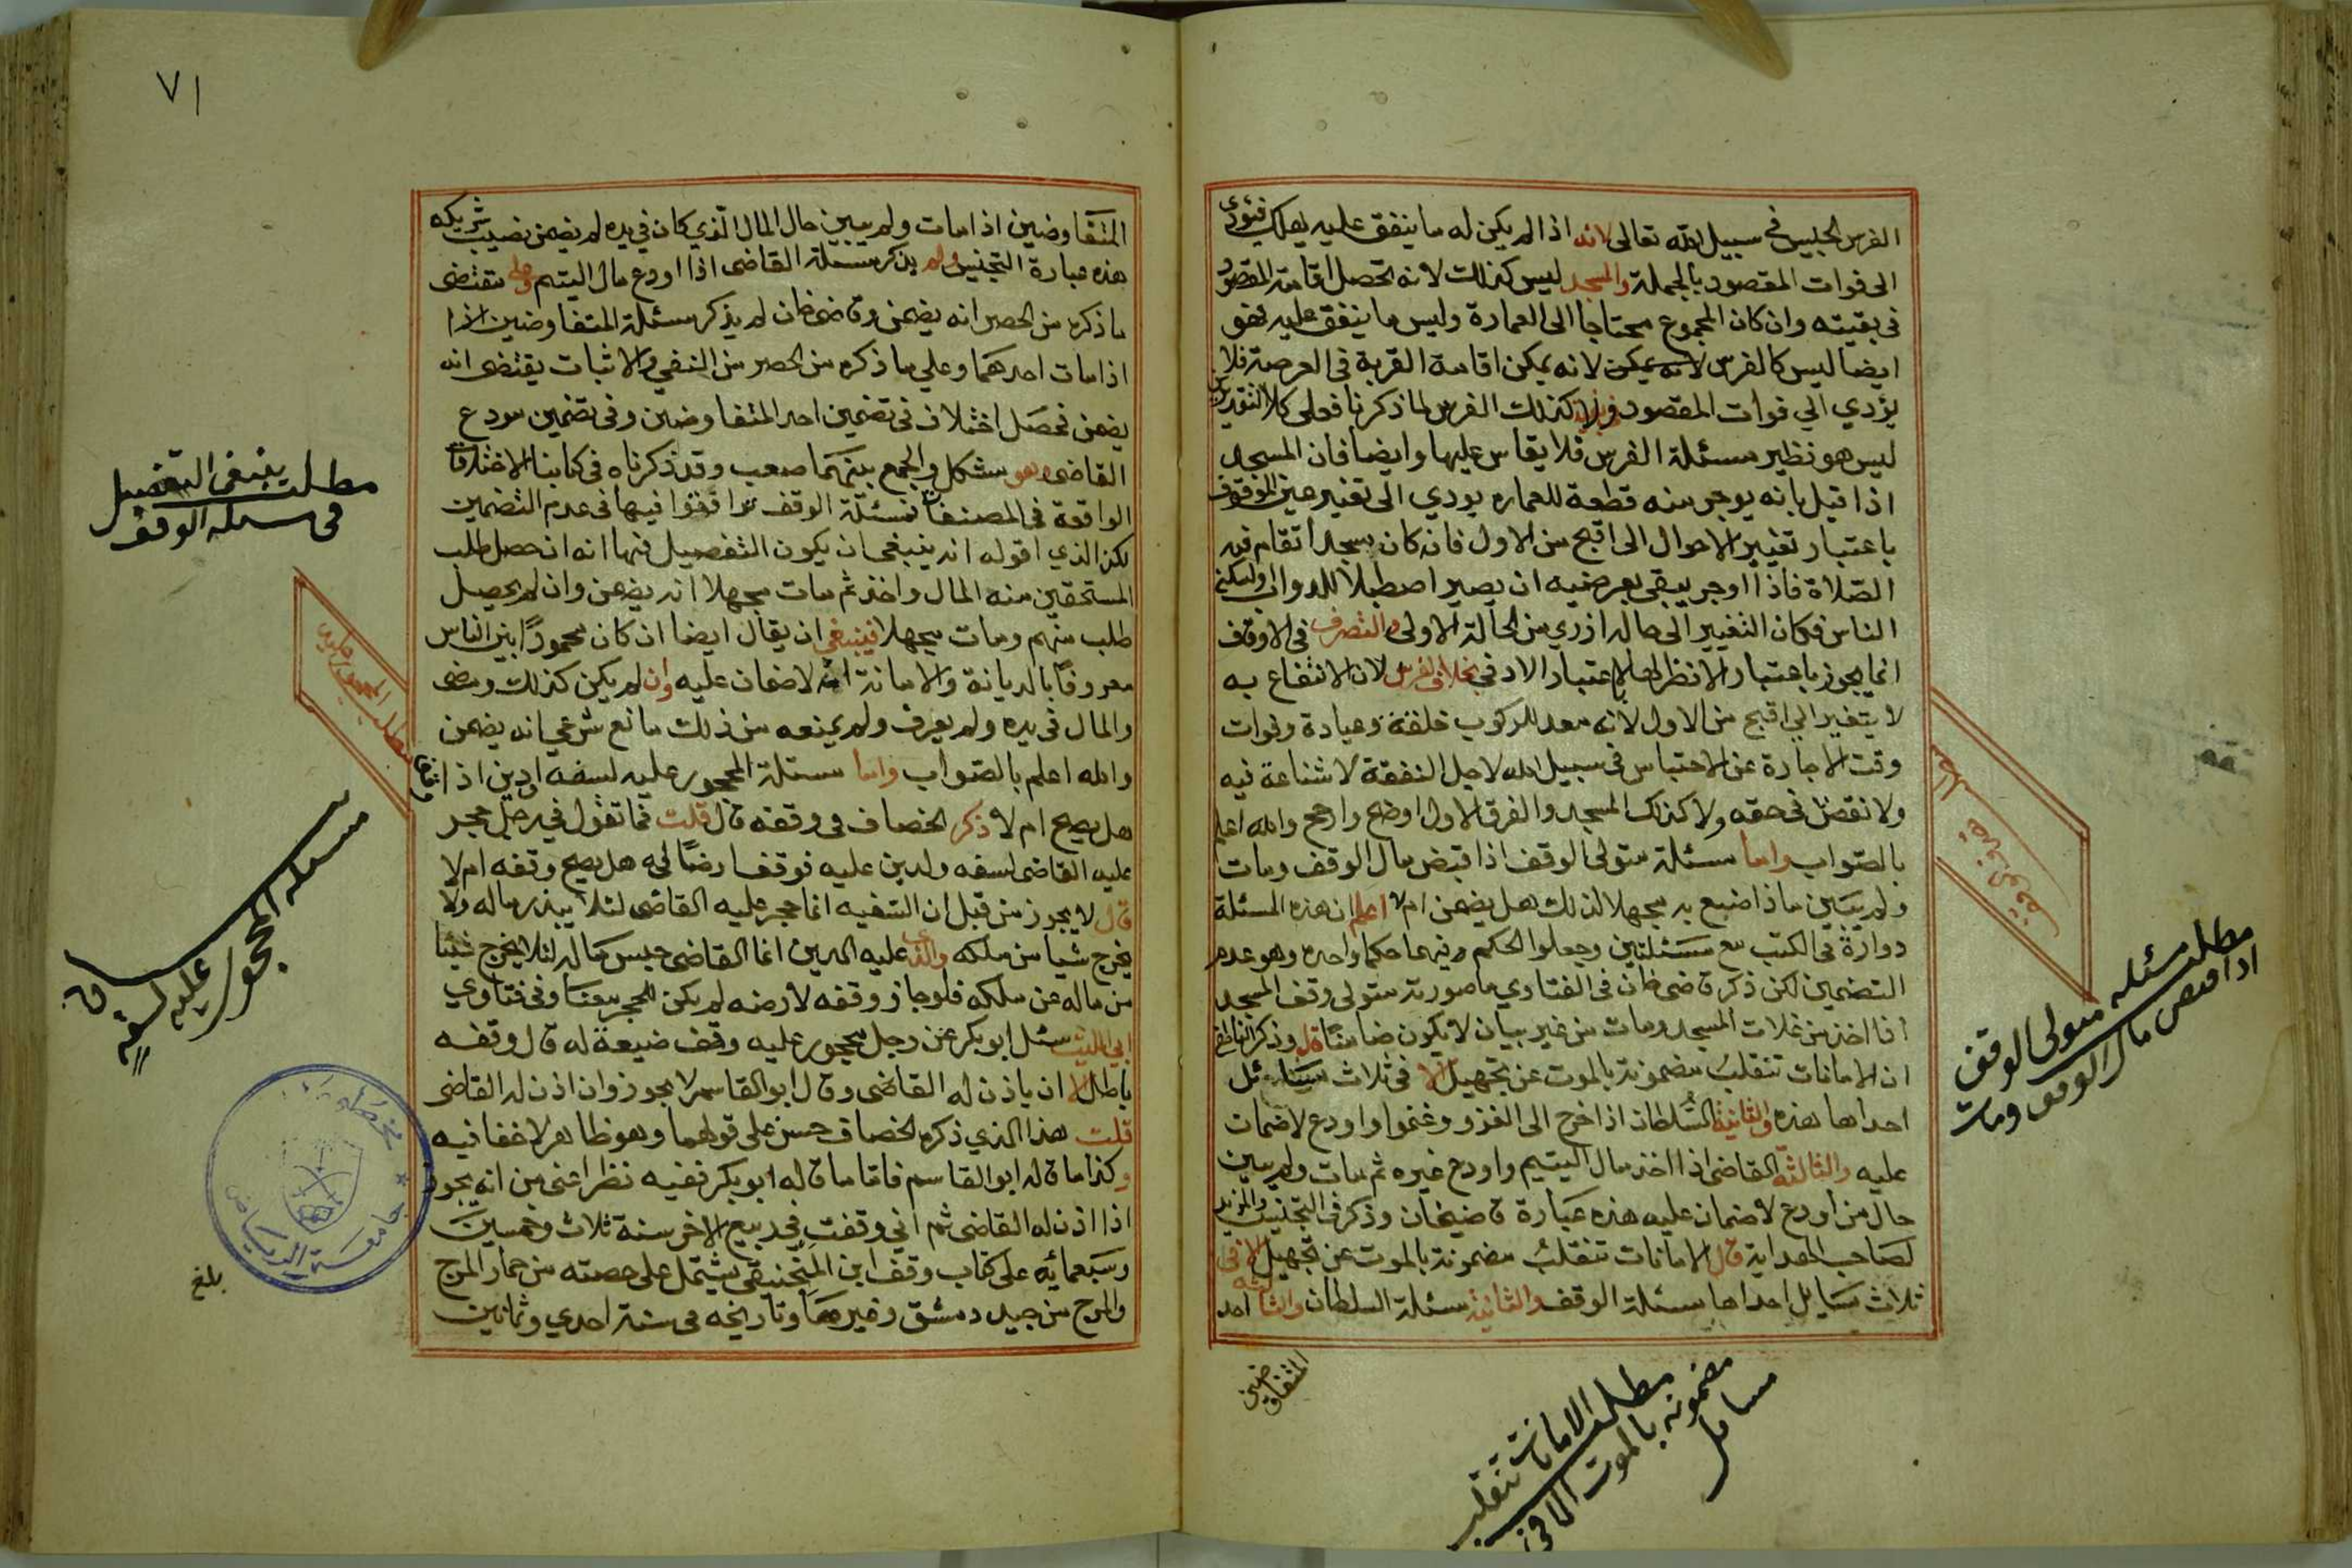 الفرس الحبيس في سبيل الله تعالى لانه اذا لم يكن له ما ينفق عليه يهلك فيؤدي
الى فوات المقصود بالجملة والمسجد ليس كذلك لانه تحصل اقامة المقصود
في بقيته وان كان المجموع محتاجا الى العمارة وليس ما ينفق عليه فهو
ايضا ليس كالفرس لانه يمكن لانه يمكن اقامة القربة في العرصة فلا
يؤدي الي فوات المقصود ولا كذلك الفرس لما ذكرنا فعلى كلا التقديرين
ليس هو نظير مسئلة الفرس فلا يقاس عليها وايضا فان المسجد
اذا قيل بانه يوجر منه قطعة للعماره يودي الى تغيير عين الموقوف
باعتبار تغيير الاحوال الى اقبح من الاول فانه كان مسجدا تقام فيه
الصلاة فاذا اوجر يبقى بعرضيه ان يصير اصطبلا للدواب او ليسكنه
الناس فكان التغيير الى حاله ازري من الحالة الاولى والتصرف في الاوقاف
انما يجوز باعتبار الانظر لها لا باعتبار الادنى بخلاف الفرس لان الانتفاع به
لا يتغير الى اقبح من الاول لانه معد للركوب خلقة وعبادة وفوات
وقت الاجارة عن الاحتباس في سبيل الله لاجل النفقة لا شناعة فيه
ولا نقص في حقه ولا كذلك المسجد والفرق الاول اوضح وارجح والله اعلم
بالصواب واما مسئلة متولي الوقف اذا قبض مال الوقف ومات
ولم يبين ماذا صنع به مجهلا لذلك هل يضمن ام لا اعلم ان هذه المسئلة
دوارة في الكتب مع مسئلتين وجعلوا الحكم فيهما حكما واحدا وهو عدم
التضمين لكن ذكر قاضي خان في الفتاوي ما صورته متولي وقف المسجد
اذا اخذ من غلات المسجد ومات من غير بيان لا يكون ضامنا قال وذكر الناطفي
ان الامانات تنقلب مضمونة بالموت عن تجهيل الا في ثلاث مسائل
احداها هذه والثانية السلطان اذا خرج الى الغزو وغنموا واودع لا ضمان
عليه والثالثة القاضي اذا اخذ مال اليتيم واودع غيره ثم مات ولم يبين
حال من اودع لا ضمان عليه هذه عبارة قاضيخان وذكر في التجنيس والمزيد
لصاحب الهداية قال الامانات تنقلب مضمونة بالموت عن تجهيل الا في
ثلاث مسايل احداها مسئلة الوقف والثانية مسئلة السلطان والثالثة احد
المتفاوضين
مطلب مسئله متولى الوقف
اذا قبض مال الوقف ومات
مطلب الامانات تنقلب
مضمونه بالموت الا في
مسايل
٧١
المتفاوضين اذا مات ولم يبين حال المال الذي كان في يده لم يضمن نصيب شريكه
هذه عبارة التجنيس ولم يذكر مسئلة القاضي اذا اودع مال اليتيم وعلى مقتضى
ما ذكره من الحصر انه يضمن وقاضي خان لم يذكر مسئلة المتفاوضين اذا
اذا مات احدهما وعلي ما ذكره من الحصر من النفي والاثبات يقتضي انه
يضمن فحصل اختلاف في تضمين احد المتفاوضين وفي تضمين مودع
القاضي وهو مشكل والجمع بينهما صعب وقد ذكرناه في كتابنا الاختلافات
الواقعة في المصنفات فمسئلة الوقف توافقوا فيها في عدم التضمين
لكن الذي اقوله انه ينبغي ان يكون التفصيل فيها انه ان حصل طلب
المستحقين منه المال واخذ ثم مات مجهلا انه يضمن وان لم يحصل
طلب منهم ومات مجهلا فينبغي ان يقال ايضا ان كان محمودا بين الناس
معروفا بالديانة والامانة انه لا ضمان عليه وان لم يكن كذلك ومضى
والمال في يده ولم يعرف ولم يمنعه من ذلك مانع شرعي انه يضمن
والله اعلم بالصواب واما مسئلة المحجور عليه لسفه او دين اذا وقف
هل يصح ام لا ذكر الخصاف في وقفه قال قلت فما تقول في رجل حجر
عليه القاضي لسفه ولدين عليه فوقف ارضا له هل يصح وقفه ام لا
قال لا يجوز من قبل ان السفيه انما حجر عليه القاضي لئلا يبذر ماله ولا
يخرج شيا من ملكه والذي عليه الدين انما القاضي حبس ماله لئلا يخرج شيئا
من ماله عن ملكه فلو جاز وقفه لارضه لم يكن للحجر معنا وفي فتاوي
ابي الليث سئل ابو بكر عن رجل محجور عليه وقف ضيعة له قال وقفه
باطل الا ان ياذن له القاضي وقال ابو القاسم لا يجوز وان اذن له القاضي
قلت هذا الذي ذكره الخصاف حسن على قولهما وهو ظاهر لا خفا فيه
وكذا ما قاله ابو القاسم فاما ما قاله ابو بكر ففيه نظر اعني من انه يجوز
اذا اذن له القاضي ثم اني وقفت في ربيع الاخر سنة ثلاث وخمسين
وسبعمائه على كتاب وقف ابن المنجنيقي يشتمل على حصته من حمار المرج
والمرج من جبل دمشق وغيرهما وتاريخه في سنة احدي وثمانين
مطلب ينبغى التفصيل
في مسئله الوقف
مسئله المحجور عليه لسفه
بلغ
جامعة الرياض